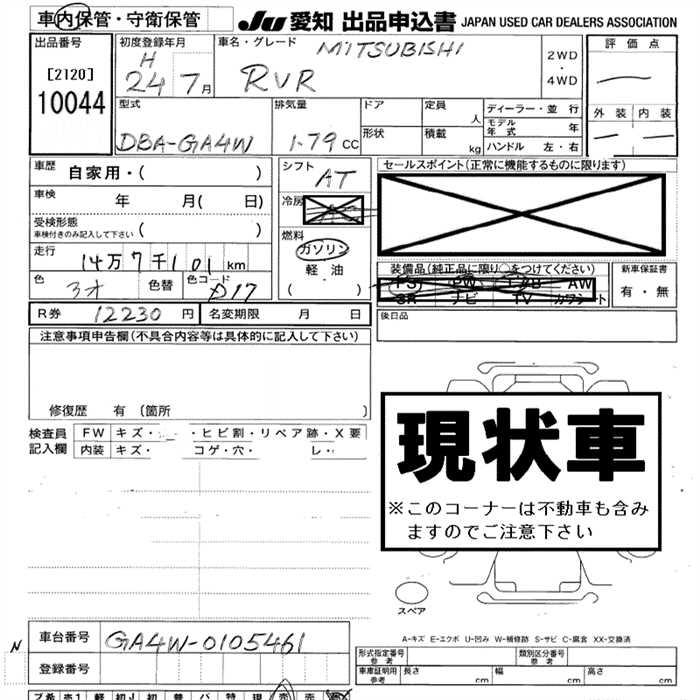 車内保管・守衛保管
JU 愛知 出品申込書 JAPAN USED CAR DEALERS ASSOCIATION
出品番号
[2120]
10044
初度登録年月
H
24 7月
車名・グレード
MITSUBISHI
RVR
2WD
・
4WD
評価点
外装 内装
型式
DBA-GA4W
排気量
1.79 CC
ドア
形状
定員 人
積載 kg
ディーラー・並 行
モデル年式 年
ハンドル 左・右
車歴 自家用・( )
車検 年 月( 日)
受検形態
車検付きのみ記入して下さい ( )
走行 14万7千101km
色
色替 色コード D17
シフト AT
冷房
燃料
ガソリン
軽油
( )
セールスポイント(正常に機能するものに限ります)
装備品(純正品に限り○をつけてください)
PS PW エアB AW
SR ナビ TV カワシート
新車保証書
有・無
後日品
R券 12230 円 名変期限 月 日
注意事項申告欄(不具合内容等は具体的に記入して下さい)
修復歴 有 (箇所 )
検査員
記入欄
FW キズ・ ・ヒビ割・リペア跡・X要
内装 キズ・ コゲ・穴・ レ・
現状車
※このコーナーは不動車も含み
ますのでご注意下さい
スペア
A-キズ E-エクボ U-凹み W-補修跡 S-サビ C-腐食 XX-交換済
N
車台番号 GA4W-0105461
登録番号
形式指定番号
参考
類別区分番号
参考
車庫証明用
参考
長さ cm 幅 cm 高さ cm